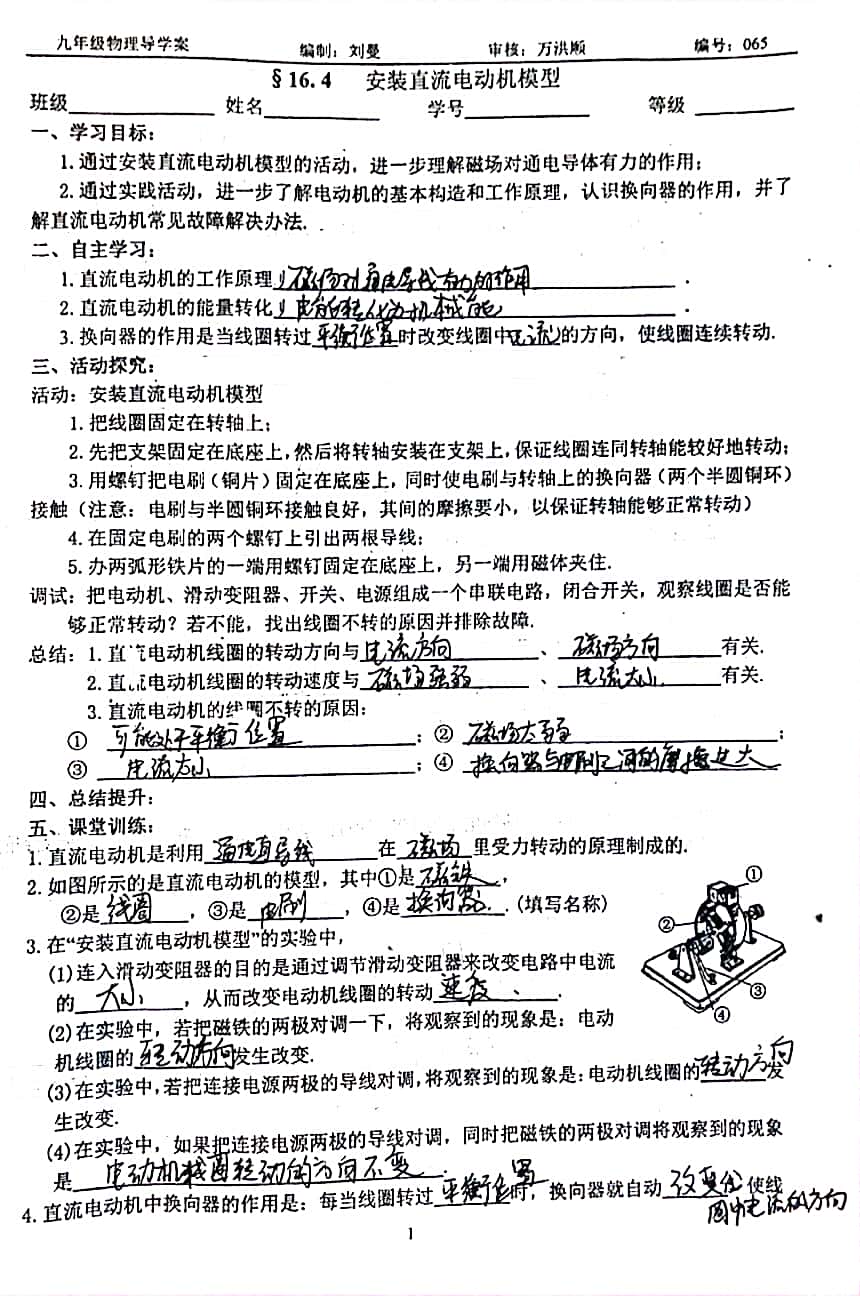 九年级物理导学案 编制：刘曼 审核：万洪顺 编号：065
§16.4 安装直流电动机模型
班级 姓名 学号 等级
一、学习目标：
1.通过安装直流电动机模型的活动，进一步理解磁场对通电导体有力的作用；
2.通过实践活动，进一步了解电动机的基本构造和工作原理，认识换向器的作用，并了
解直流电动机常见故障解决办法.
二、自主学习：
1.直流电动机的工作原理 磁场对通电导线有力的作用.
2.直流电动机的能量转化 电能转化为机械能.
3.换向器的作用是当线圈转过平衡位置时改变线圈中电流的方向，使线圈连续转动.
三、活动探究：
活动：安装直流电动机模型
1.把线圈固定在转轴上；
2.先把支架固定在底座上，然后将转轴安装在支架上，保证线圈连同转轴能较好地转动；
3.用螺钉把电刷（铜片）固定在底座上，同时使电刷与转轴上的换向器（两个半圆铜环）
接触（注意：电刷与半圆铜环接触良好，其间的摩擦要小，以保证转轴能够正常转动）
4.在固定电刷的两个螺钉上引出两根导线；
5.办两弧形铁片的一端用螺钉固定在底座上，另一端用磁体夹住.
调试：把电动机、滑动变阻器、开关、电源组成一个串联电路，闭合开关，观察线圈是否能
够正常转动？若不能，找出线圈不转的原因并排除故障.
总结：1.直流电动机线圈的转动方向与电流方向、磁场方向有关.
2.直流电动机线圈的转动速度与磁场强弱、电流大小有关.
3.直流电动机的线圈不转的原因：
① 可能处于平衡位置；② 磁场太弱；
③ 电流太小；④ 换向器与电刷之间的摩擦过大
四、总结提升：
五、课堂训练：
1.直流电动机是利用通电直导线在磁场里受力转动的原理制成的.
2.如图所示的是直流电动机的模型，其中①是磁铁，
②是线圈，③是电刷，④是换向器.（填写名称）
3.在“安装直流电动机模型”的实验中，
(1)连入滑动变阻器的目的是通过调节滑动变阻器来改变电路中电流
的大小，从而改变电动机线圈的转动速度.
(2)在实验中，若把磁铁的两极对调一下，将观察到的现象是：电动
机线圈的转动方向发生改变.
① ② ③ ④
(3)在实验中，若把连接电源两极的导线对调，将观察到的现象是：电动机线圈的转动方向发
生改变.
(4)在实验中，如果把连接电源两极的导线对调，同时把磁铁的两极对调将观察到的现象
是 电动机线圈转动的方向不变.
4.直流电动机中换向器的作用是：每当线圈转过平衡位置时，换向器就自动改变 使线
圈中电流的方向
1